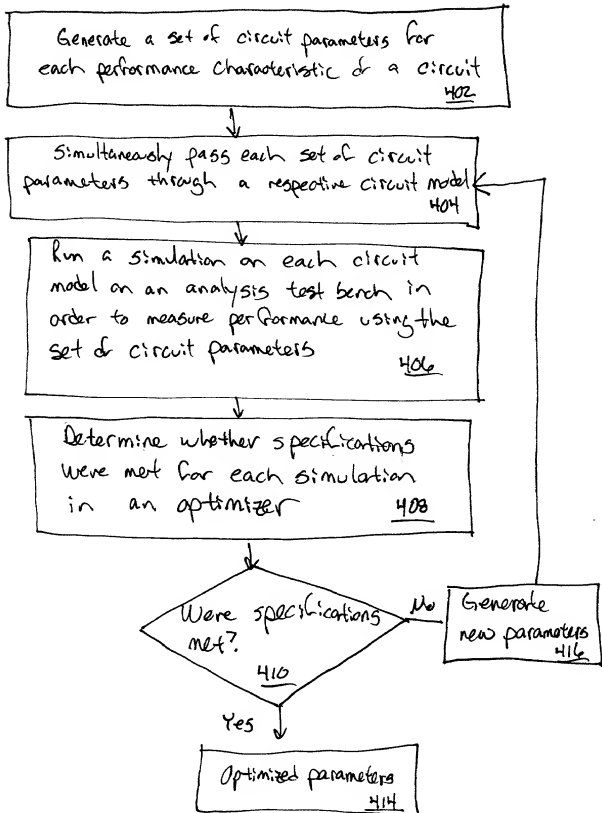 Generate a set of circuit parameters for
each performance characteristic of a circuit
402
Simultaneously pass each set of circuit
parameters through a respective circuit model
404
Run a simulation on each circuit
model on an analysis test bench in
order to measure performance using the
set of circuit parameters
406
Determine whether specifications
were met for each simulation
in an optimizer
408
Were specifications
met?
410
No
Generate
new parameters
416
Yes
Optimized parameters
414